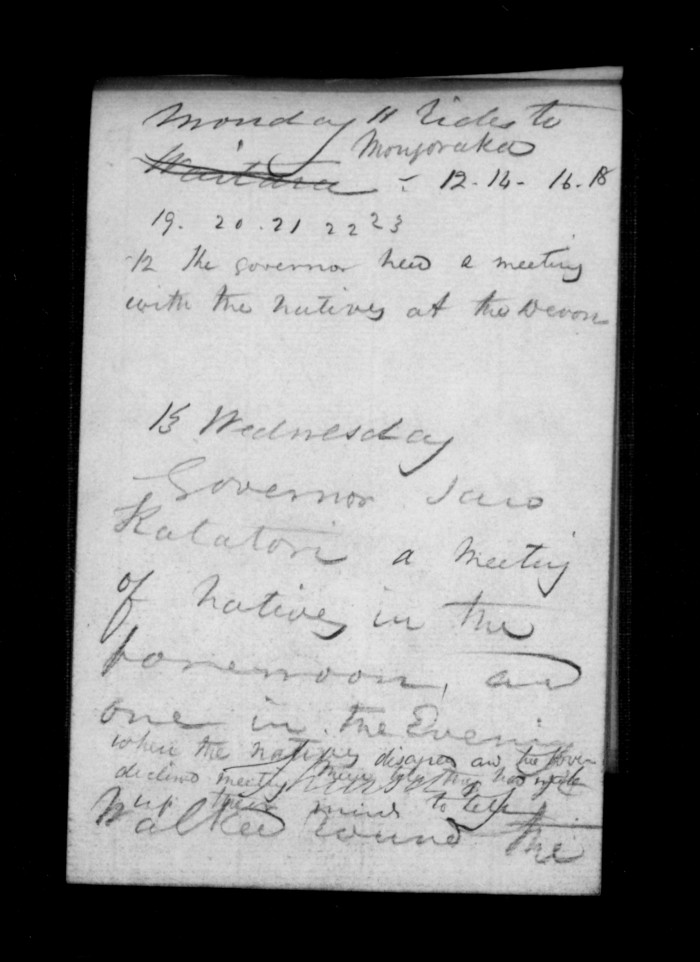 Monday 11 Rides to
Mongoraka
Waitara - 12. 14 - 16. 18
19. 20. 21 22 23
12 The governor held a meeting
with the natives at the Devon
15 Wednesday
Governor saw
Katatori a meeting
of natives in the
forenoon, and
one in the Evening
where the natives disagreed and the Gover
declined meeting they had made
up their minds to
Walked round the